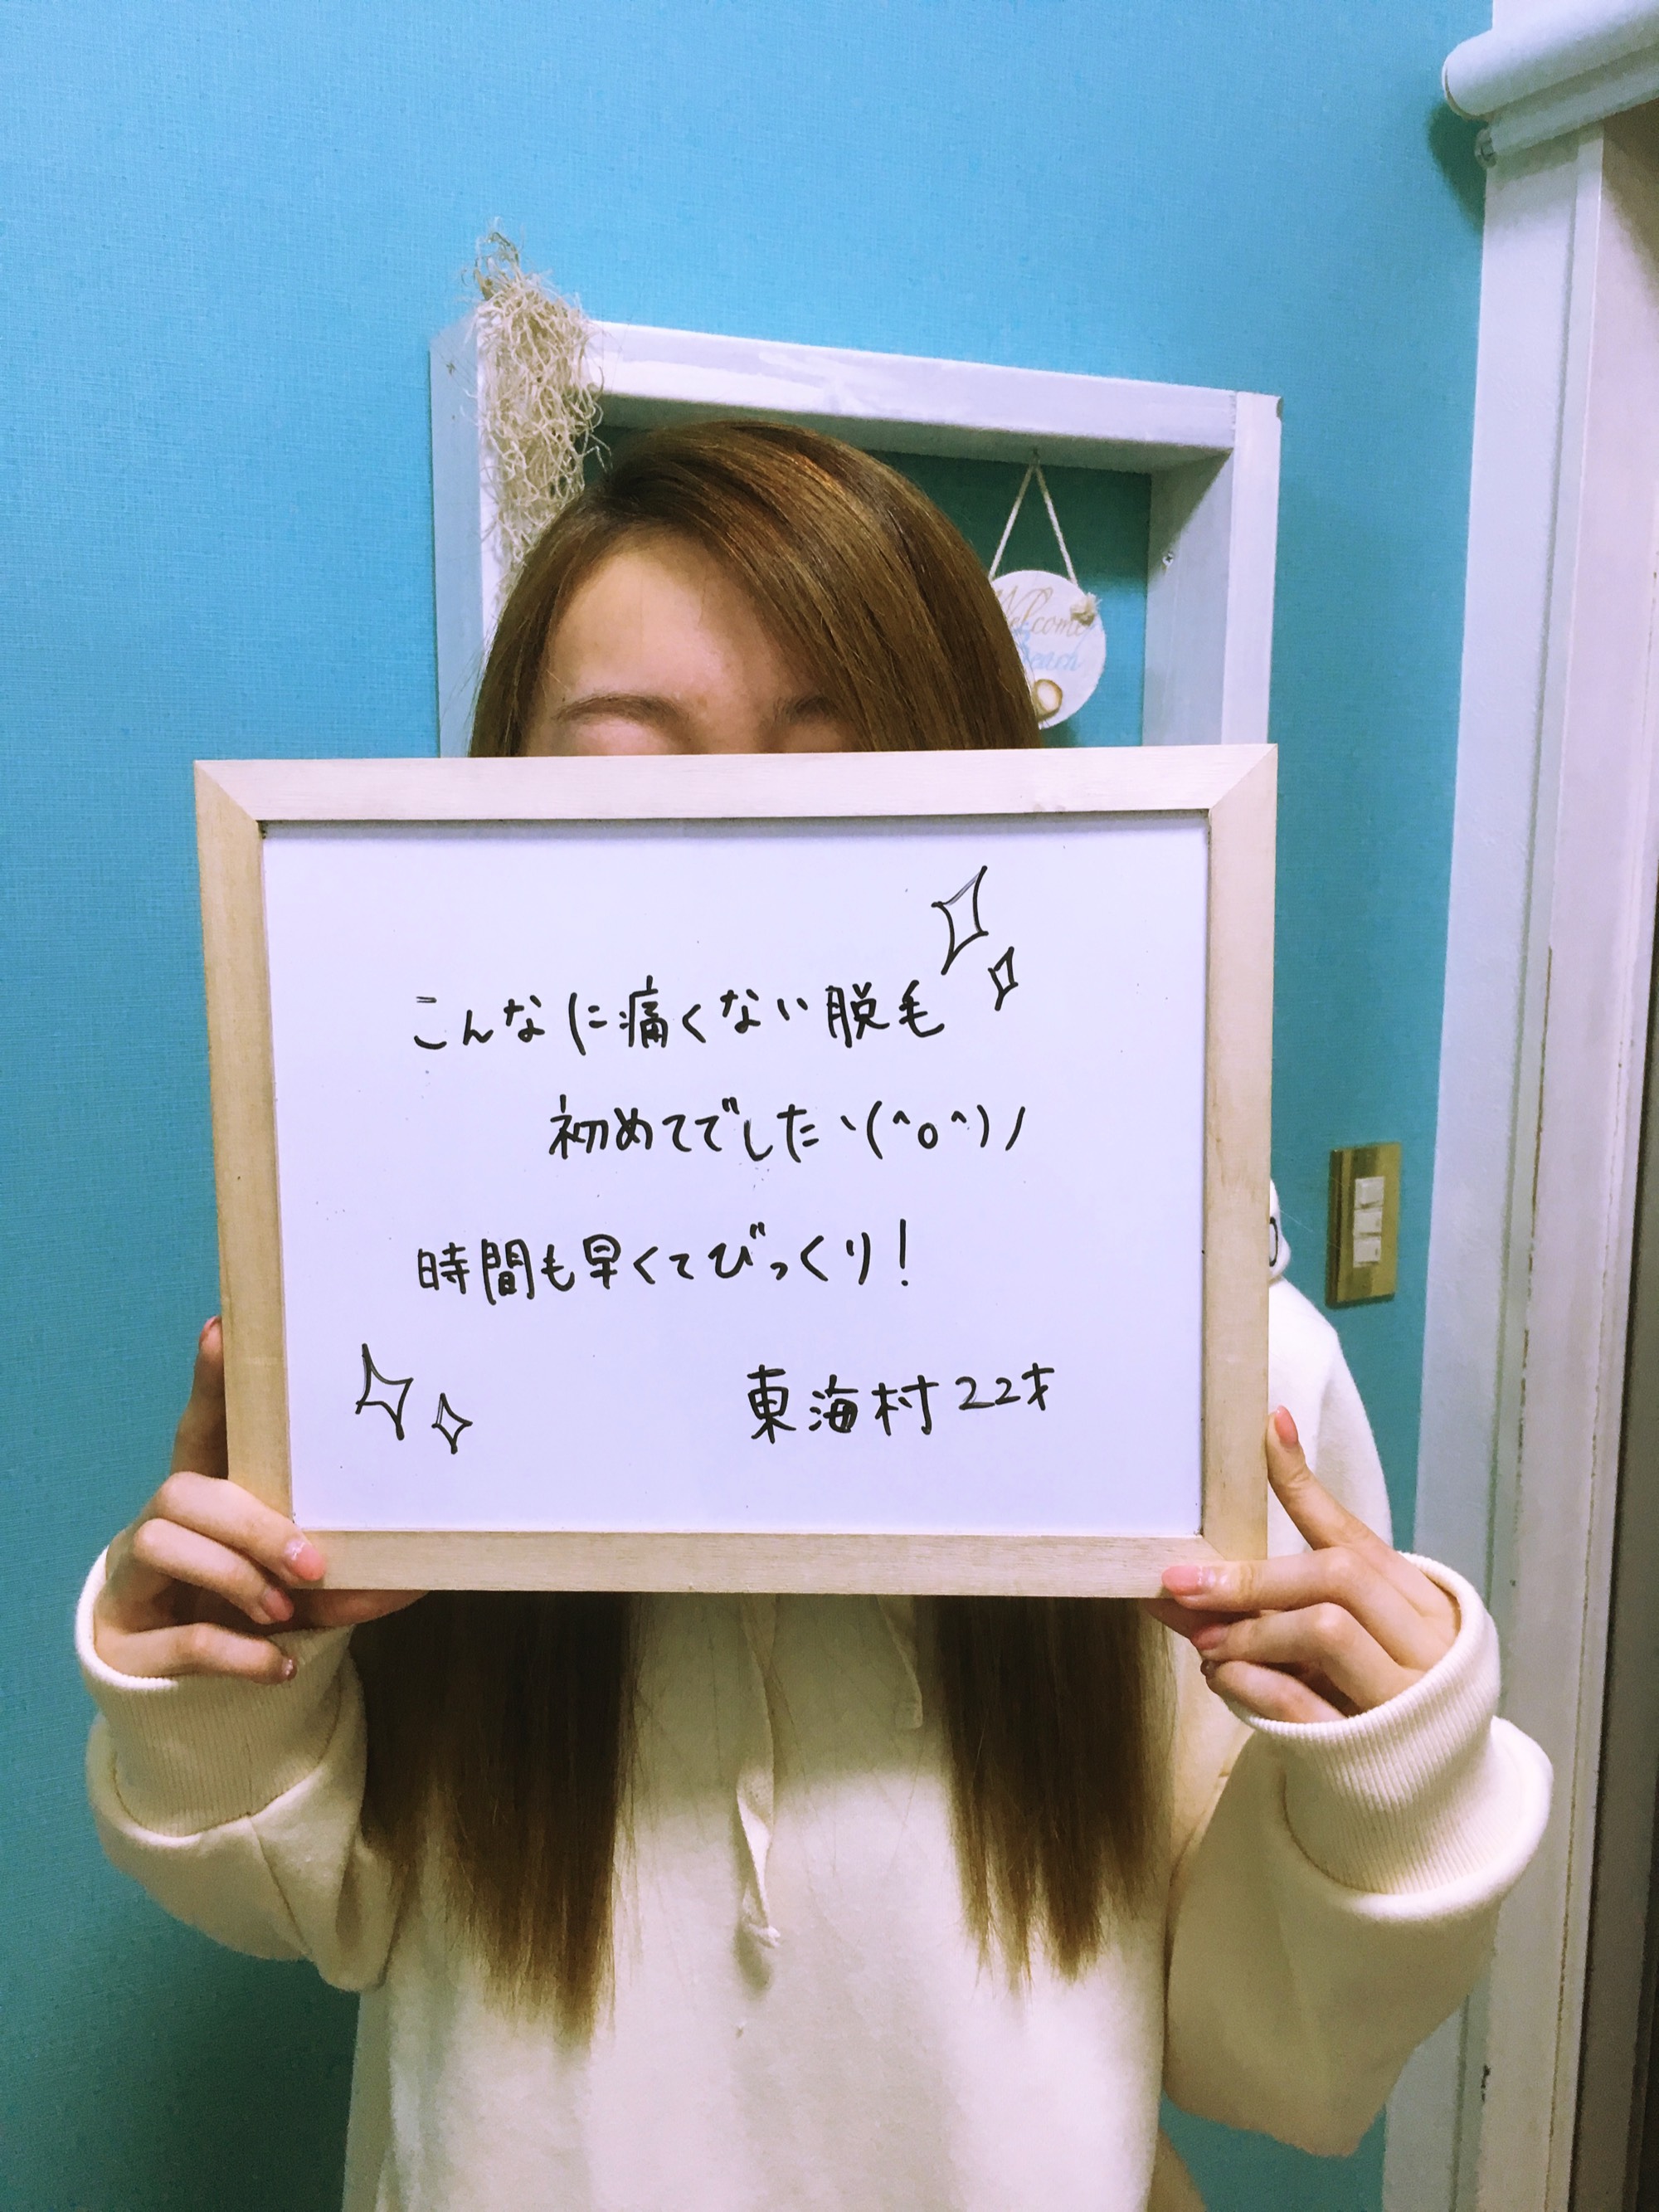 Welcome
Beach
こんなに痛くない脱毛
初めてでした ヽ(^o^)ノ
時間も早くてびっくり!
東海村22才